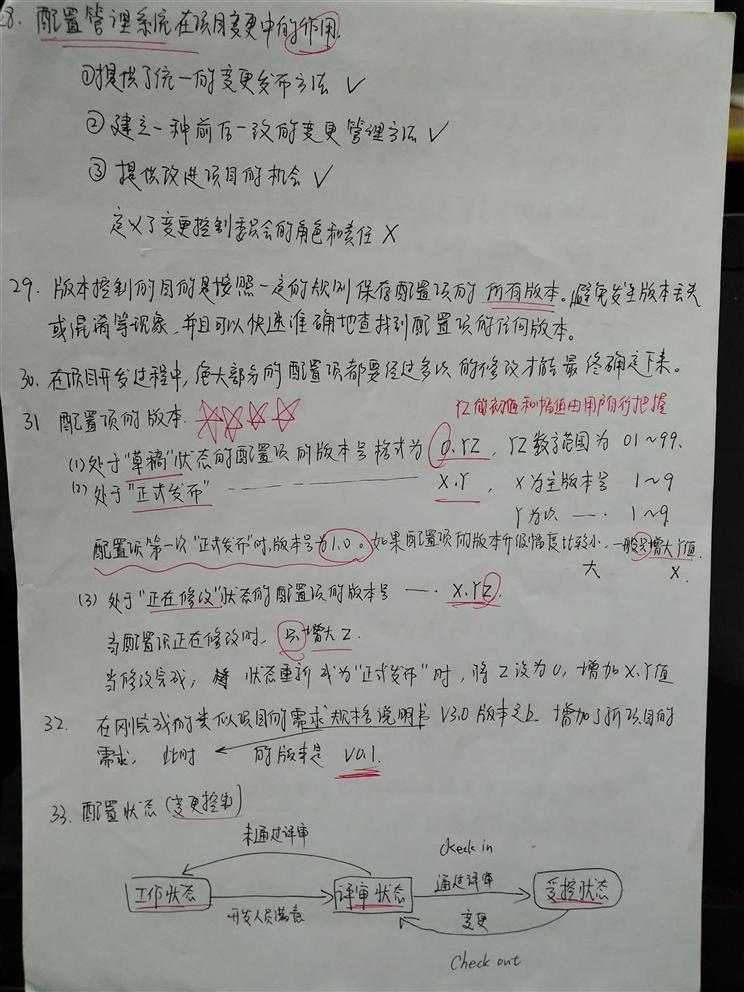 28. 配置管理系统在项目变更中的作用.
①提供了统一的变更发布方法 ✓
② 建立一种前后一致的变更管理方法 ✓
③ 提供改进项目的机会 ✓
定义了变更控制委员会的角色和责任 X
29. 版本控制的目的是按照一定的规则保存配置项的所有版本。避免发生版本丢失
或混淆等现象,并且可以快速准确地查找到配置项的任何版本。
30. 在项目开发过程中,绝大部分的配置项都要经过多次的修改才能最终确定下来。
31 配置项的版本.
YZ的初值和幅值由用户自行把握
(1)处于"草稿"状态的配置项的版本号格式为 0.YZ, YZ数字范围为 01~99.
(2)处于"正式发布" —— X.Y, X为主版本号 1~9
Y为次 —— 1~9
配置项第一次"正式发布"时,版本号为1.0。如果配置项的版本升级幅度比较小,一般只增大Y值.
大 X.
(3) 处于"正在修改"状态的配置项的版本号 —— X.YZ
当配置项正在修改时, 只增大Z
当修改完成, 状态重新成为"正式发布"时,将Z设为0,增加X.Y值
32. 在刚完成的类似项目的需求规格说明书 V3.0 版本之上 增加了新项目的
需求, 此时 的版本是 V0.1.
33. 配置状态 (变更控制)
未通过评审
check in
工作状态 评审状态 通过评审 受控状态
开发人员满意 变更
Check out